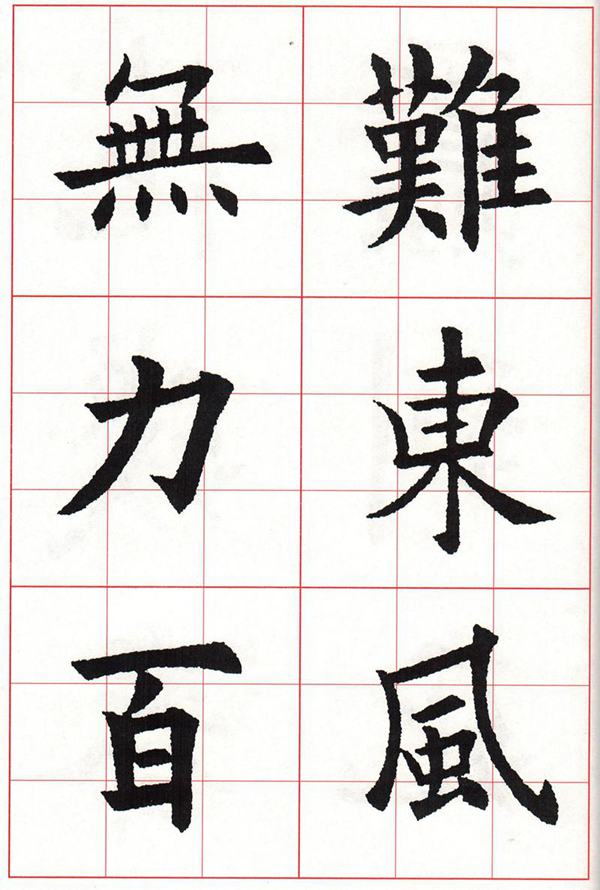 難東風
無力百